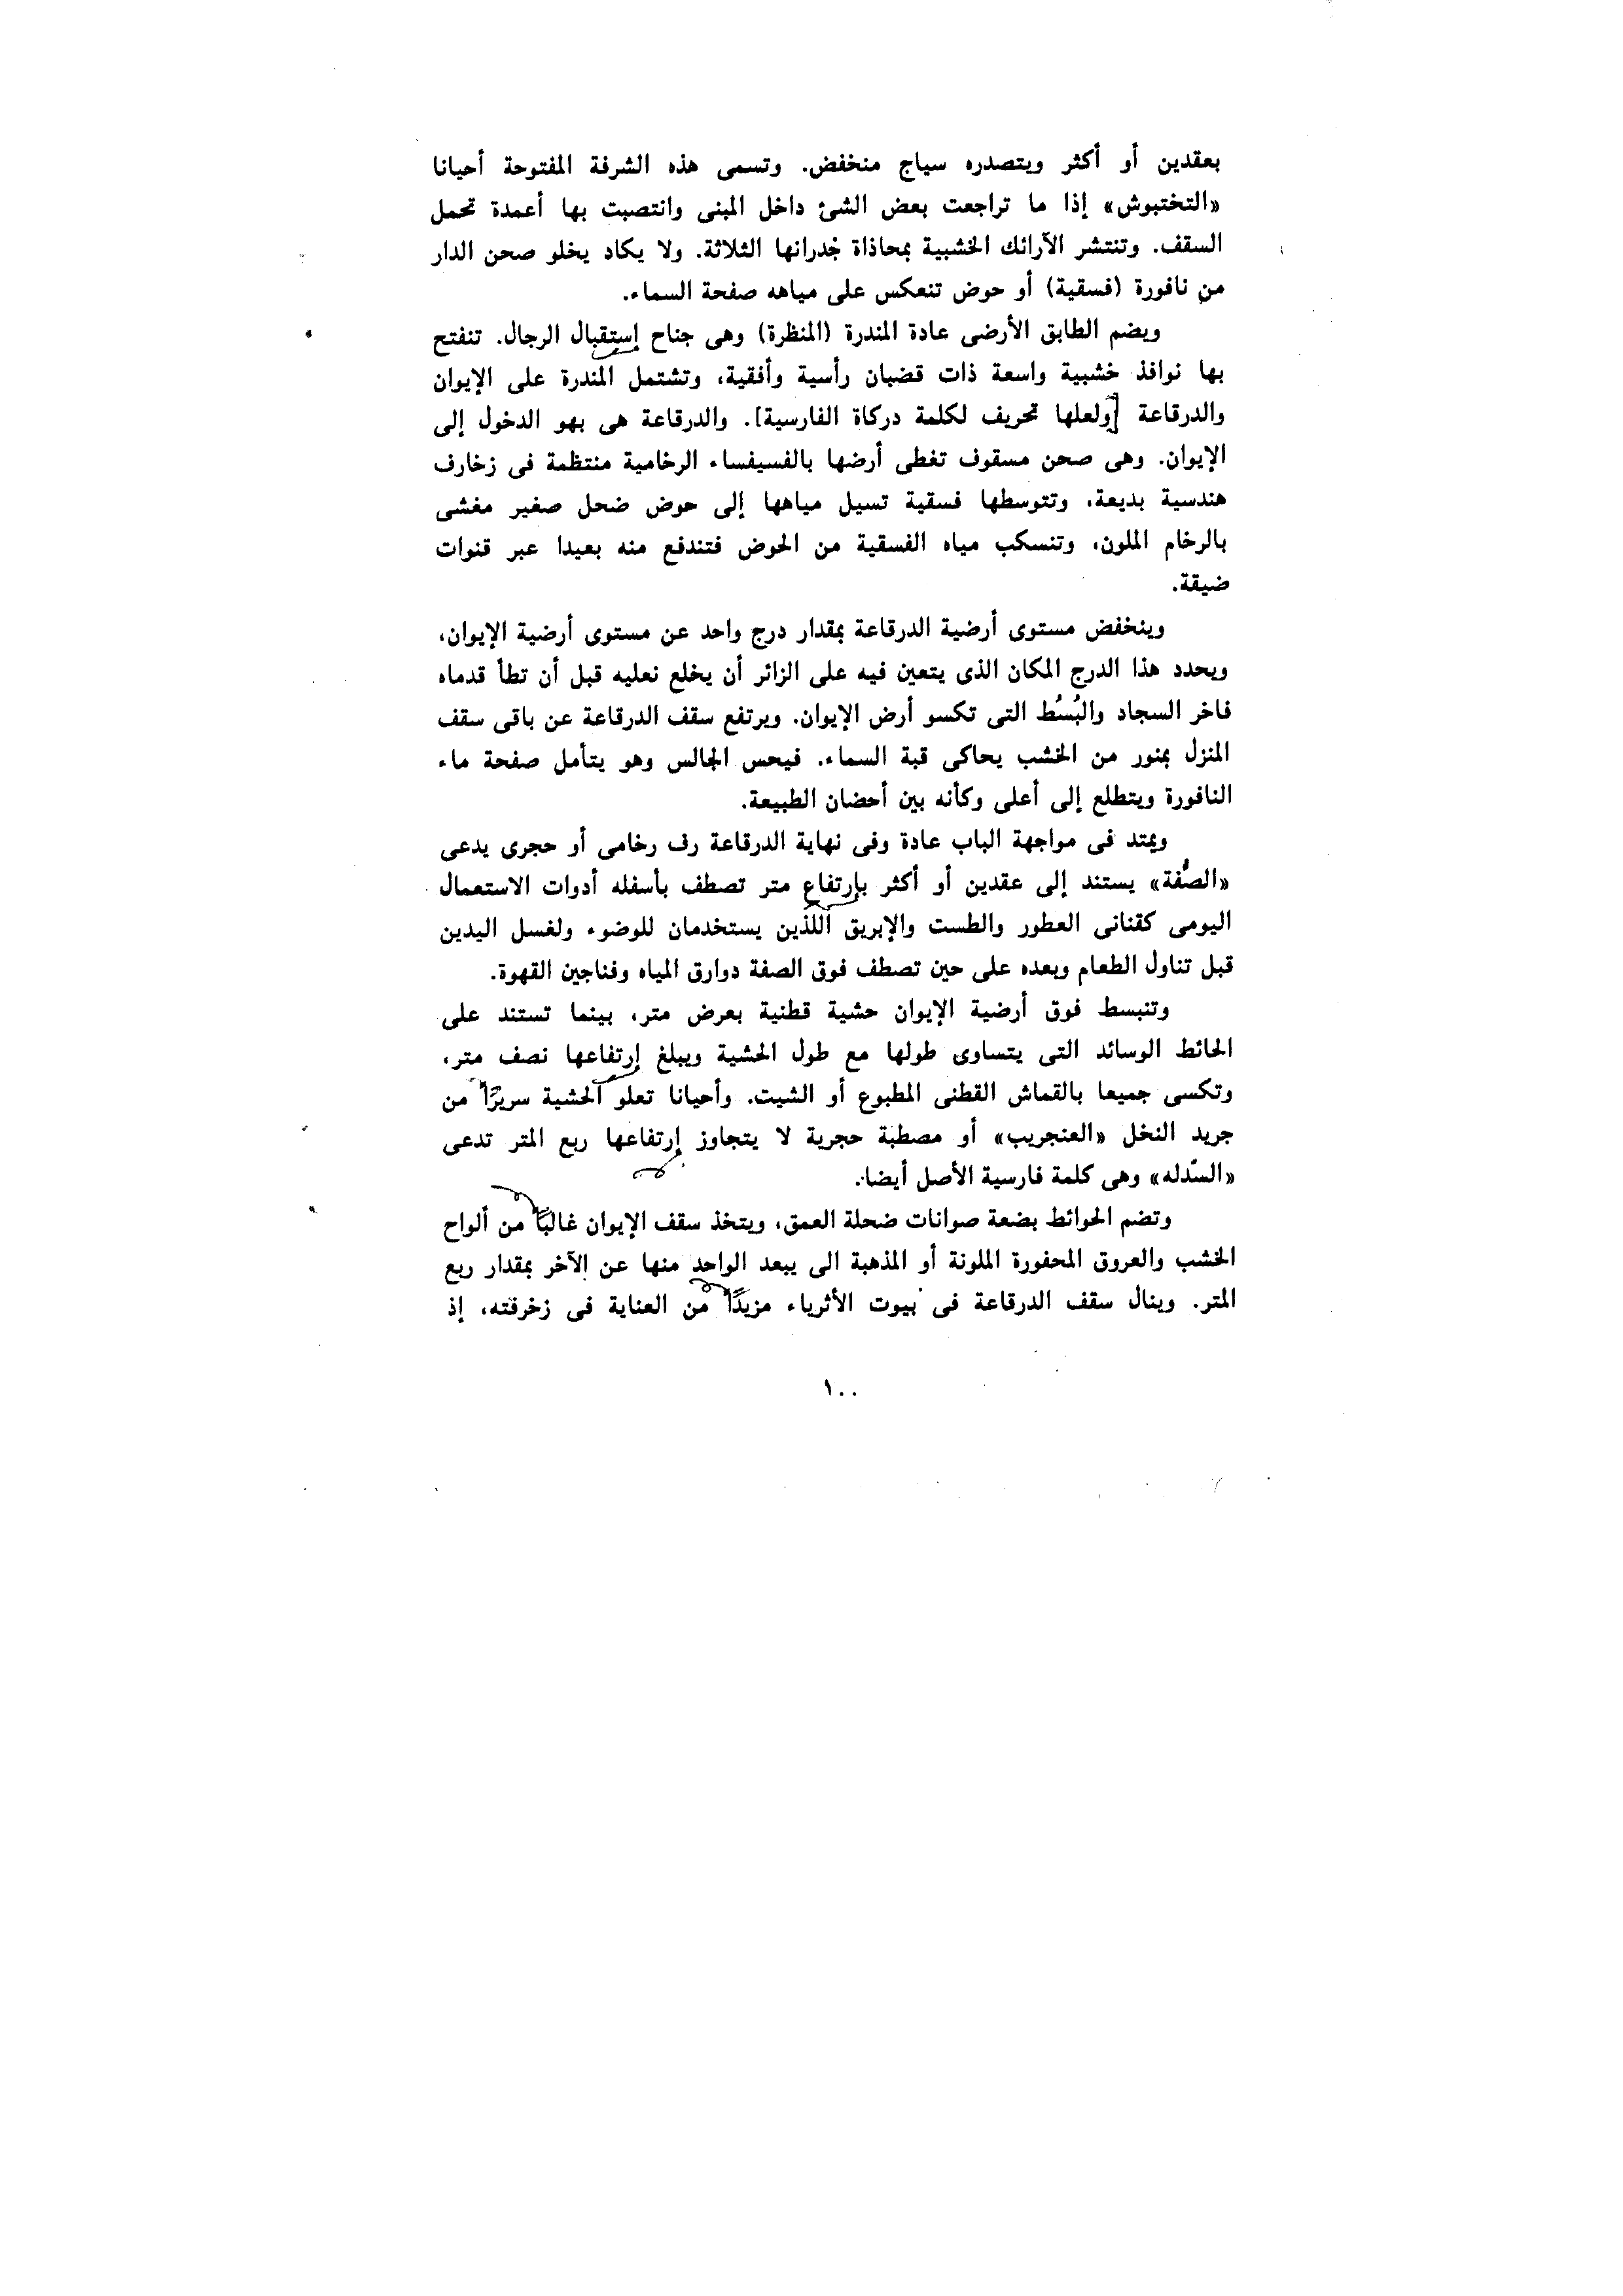 بعقدين أو أكثر ويتصدره سياج منخفض. وتسمى هذه الشرفة المفتوحة أحيانا
«التختبوش» إذا ما تراجعت بعض الشئ داخل المبنى وانتصبت بها أعمدة تحمل
السقف. وتنتشر الآرائك الخشبية بمحاذاة جُدرانها الثلاثة. ولا يكاد يخلو صحن الدار
من نافورة (فسقية) أو حوض تنعكس على مياهه صفحة السماء.
ويضم الطابق الأرضى عادة المندرة (المنظرة) وهى جناح إستقبال الرجال. تنفتح
بها نوافذ خشبية واسعة ذات قضبان رأسية وأفقية، وتشتمل المندرة على الإيوان
والدرقاعة [ولعلها تحريف لكلمة دركاة الفارسية]. والدرقاعة هى بهو الدخول إلى
الإيوان. وهى صحن مسقوف تغطى أرضها بالفسيفساء الرخامية منتظمة فى زخارف
هندسية بديعة، وتتوسطها فسقية تسيل مياهها إلى حوض ضحل صغير مغشى
بالرخام الملون، وتنسكب مياه الفسقية من الحوض فتندفع منه بعيدا عبر قنوات
ضيقة.
وينخفض مستوى أرضية الدرقاعة بمقدار درج واحد عن مستوى أرضية الإيوان،
ويحدد هذا الدرج المكان الذى يتعين فيه على الزائر أن يخلع نعليه قبل أن تطأ قدماه
فاخر السجاد والبُسُط التى تكسو أرض الإيوان. ويرتفع سقف الدرقاعة عن باقى سقف
المنزل بمنور من الخشب يحاكى قبة السماء. فيحس الجالس وهو يتأمل صفحة ماء
النافورة ويتطلع إلى أعلى وكأنه بين أحضان الطبيعة.
ويمتد فى مواجهة الباب عادة وفى نهاية الدرقاعة رف رخامى أو حجرى يدعى
«الصُّفة» يستند إلى عقدين أو أكثر بإرتفاع متر تصطف بأسفله أدوات الاستعمال
اليومى كقنانى العطور والطست والإبريق اللذين يستخدمان للوضوء ولغسل اليدين
قبل تناول الطعام وبعده على حين تصطف فوق الصفة دوارق المياه وفناجين القهوة.
وتنبسط فوق أرضية الإيوان حشية قطنية بعرض متر، بينما تستند على
الحائط الوسائد التى يتساوى طولها مع طول الحشية ويبلغ إرتفاعها نصف متر،
وتكسى جميعا بالقماش القطنى المطبوع أو الشيت. وأحيانا تعلو الحشية سريرًا من
جريد النخل «العنجريب» أو مصطبة حجرية لا يتجاوز إرتفاعها ربع المتر تدعى
«السّدله» وهى كلمة فارسية الأصل أيضا.
وتضم الحوائط بضعة صوانات ضحلة العمق، ويتخذ سقف الإيوان غالبًا من ألواح
الخشب والعروق المحفورة الملونة أو المذهبة الى يبعد الواحد منها عن الآخر بمقدار ربع
المتر. وينال سقف الدرقاعة فى بيوت الأثرياء مزيدًا من العناية فى زخرفته، إذ
١٠٠